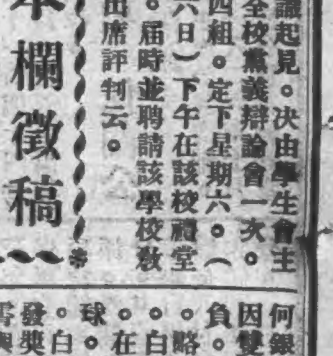 識起見。決由學生會主
全校黨義辯論會一次。
四組。定下星期六。(
六日)下午在該校禮堂
。屆時並聘請該學校教
出席評判云。
本欄徵稿
何銀
因雙
負。
。略
。白
。在
球。
。白
發奬